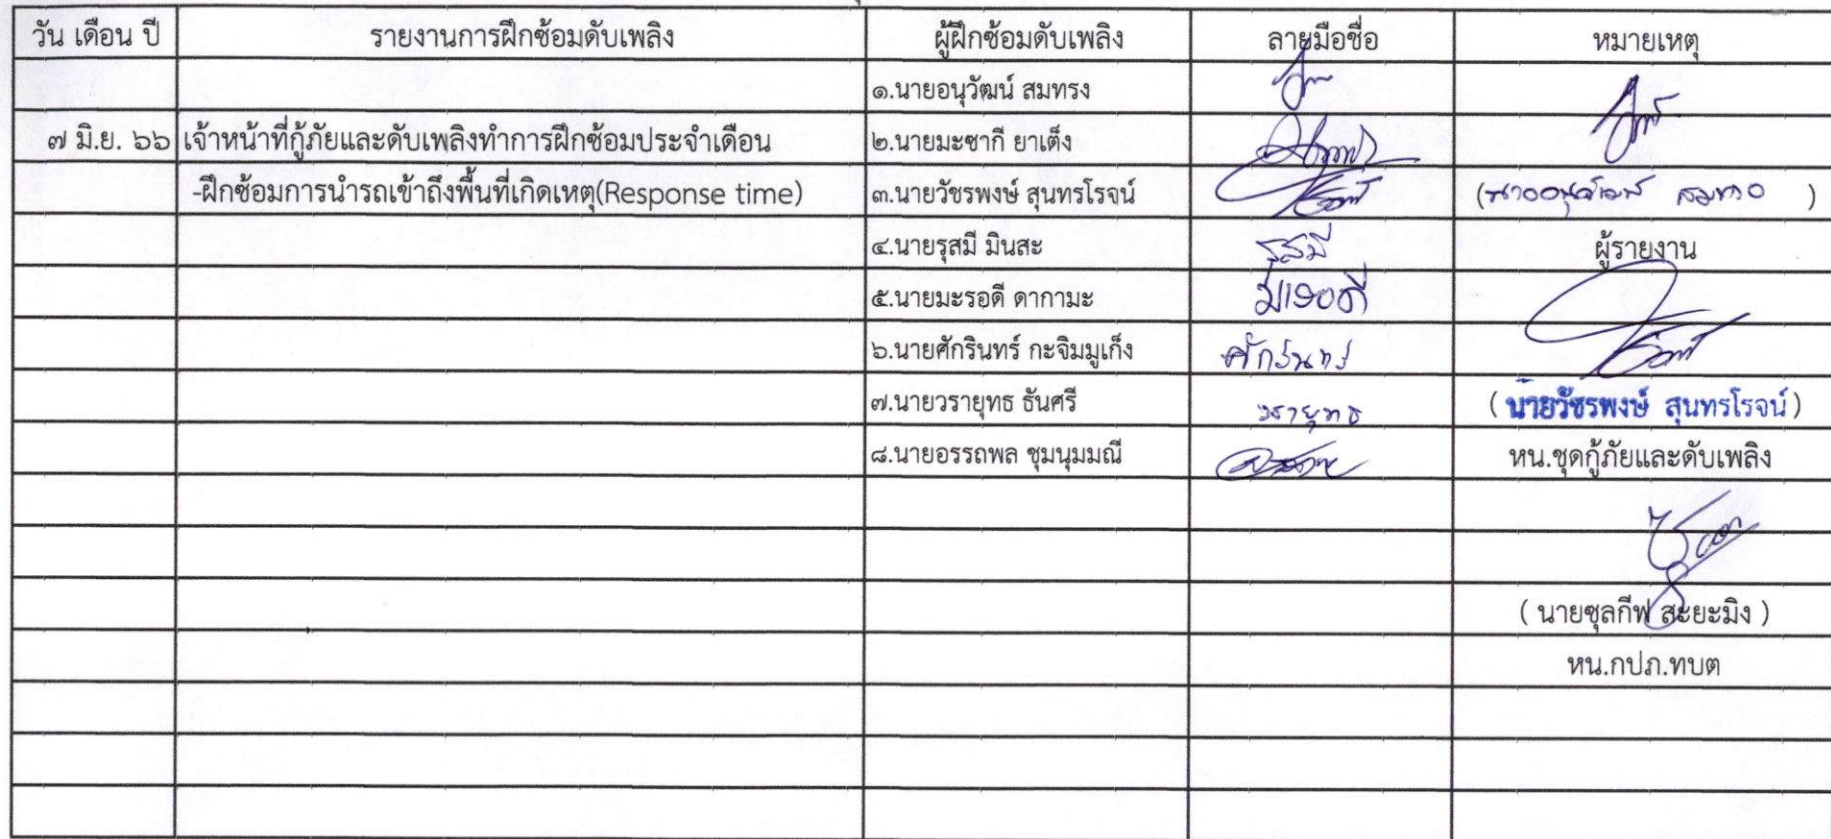 วัน เดือน ปี รายงานการฝึกซ้อมดับเพลิง ผู้ฝึกซ้อมดับเพลิง ลายมือชื่อ หมายเหตุ
๑.นายอนุวัฒน์ สมทรง
๗ มิ.ย. ๖๖ เจ้าหน้าที่กู้ภัยและดับเพลิงทำการฝึกซ้อมประจำเดือน ๒.นายมะซากี ยาเต็ง
-ฝึกซ้อมการนำรถเข้าถึงพื้นที่เกิดเหตุ(Response time) ๓.นายวัชรพงษ์ สุนทรโรจน์ ( )
๔.นายรุสมี มินสะ รุสมี ผู้รายงาน
๕.นายมะรอดี ดากามะ มะรอดี
๖.นายศักรินทร์ กะจิมมูเก็ง ศักรินทร์
๗.นายวรายุทธ ธันศรี วรายุทธ ( นายวัชรพงษ์ สุนทรโรจน์ )
๘.นายอรรถพล ชุมนุมมณี หน.ชุดกู้ภัยและดับเพลิง
( นายซุลกีฟ สะยะมิง )
หน.กปภ.ทบต